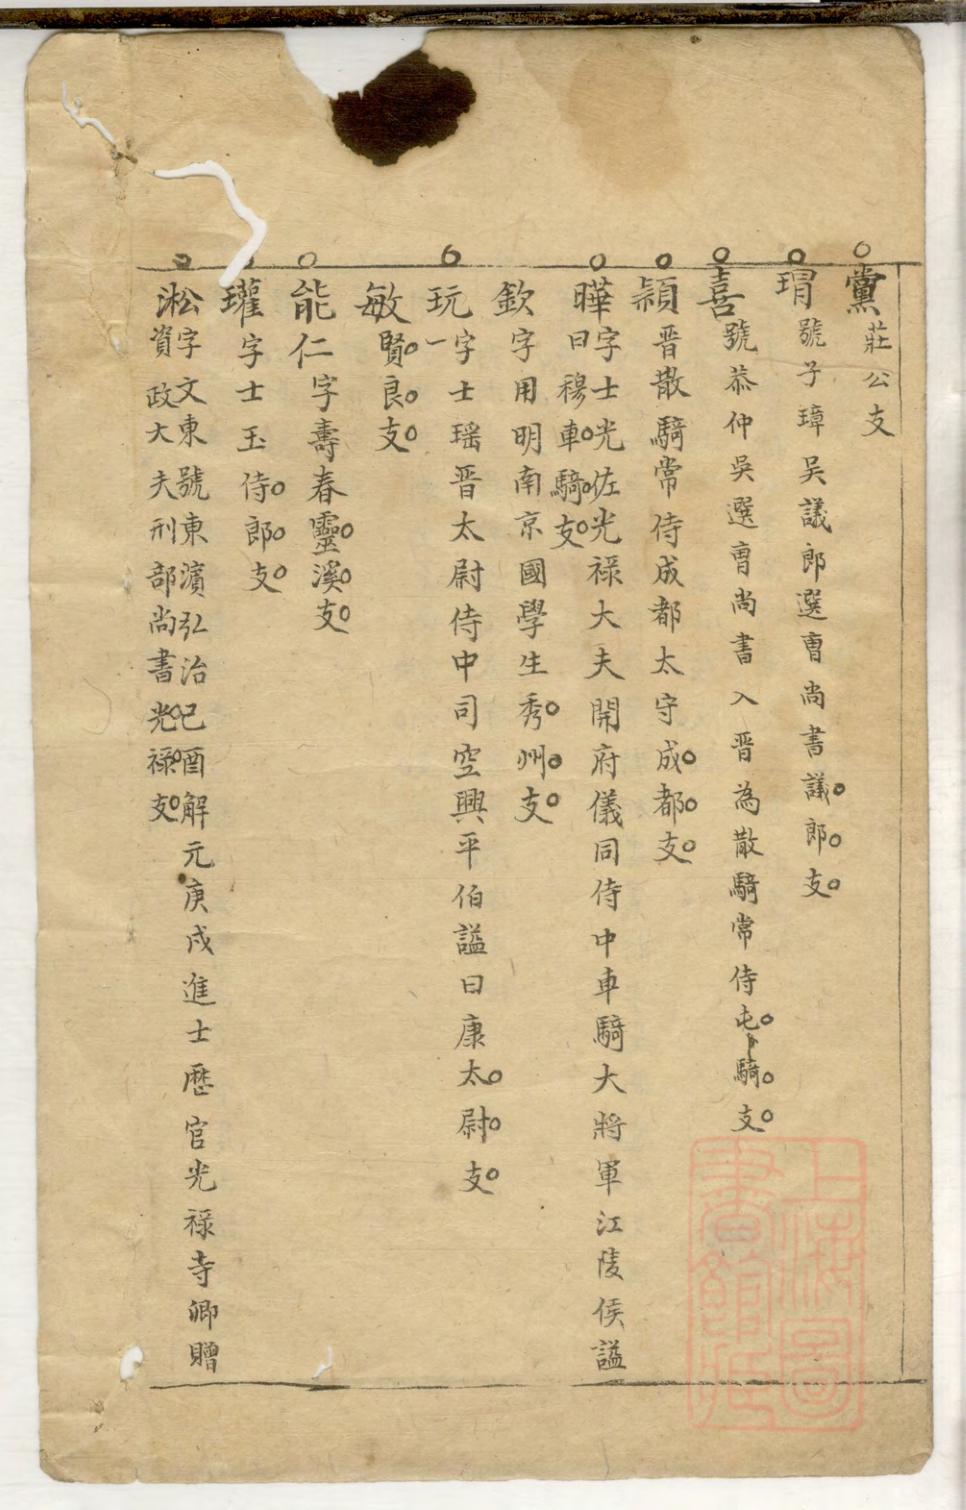 黨莊公支
瑁號子璋吴議郎選曹尚書議郎支
喜號恭仲吳選曹尚書入晋為散騎常侍屯騎支
頴晋散騎常侍成都太守成都支
曄字士光左光禄大夫開府儀同侍中車騎大將軍江陵侯謚
曰穆車騎支
欽字用明南京國學生秀州支
玩字士瑶晋太尉侍中司空興平伯謚曰康太尉支
一
敏賢良支
能仁字壽春靈溪支
瓘字士玉侍郎支
淞字文東號東濱弘治己酉解元庚戌進士歷官光禄寺卿贈
資政大夫刑部尚書光禄支
上海圖書館藏